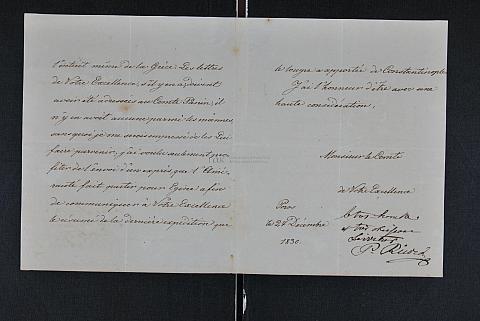 l'intérêt même de la Grèce. Les lettres
de Votre Excellence, s'il y en a, doivent
avoir été adressées au Comte Panin; il
n'y en avoit aucune parmi les miennes,
sans quoi je me serois empressé de les Lui
faire parvenir, j'ai voulu seulement pro-
fiter de l'envoi d'un exprès que l'Ami-
rauté fait partir pour Egine afin
de communiquer à Votre Excellence
le résumé de la dernière expédition que
le coupe a apportée de Constantinople.
J'ai l'honneur d'être avec une
haute considération,
Monsieur le Comte
de Votre Excellence
Poros
le 24 Décembre
1830.
très humble
et très obéissant
Serviteur
P. Ricord